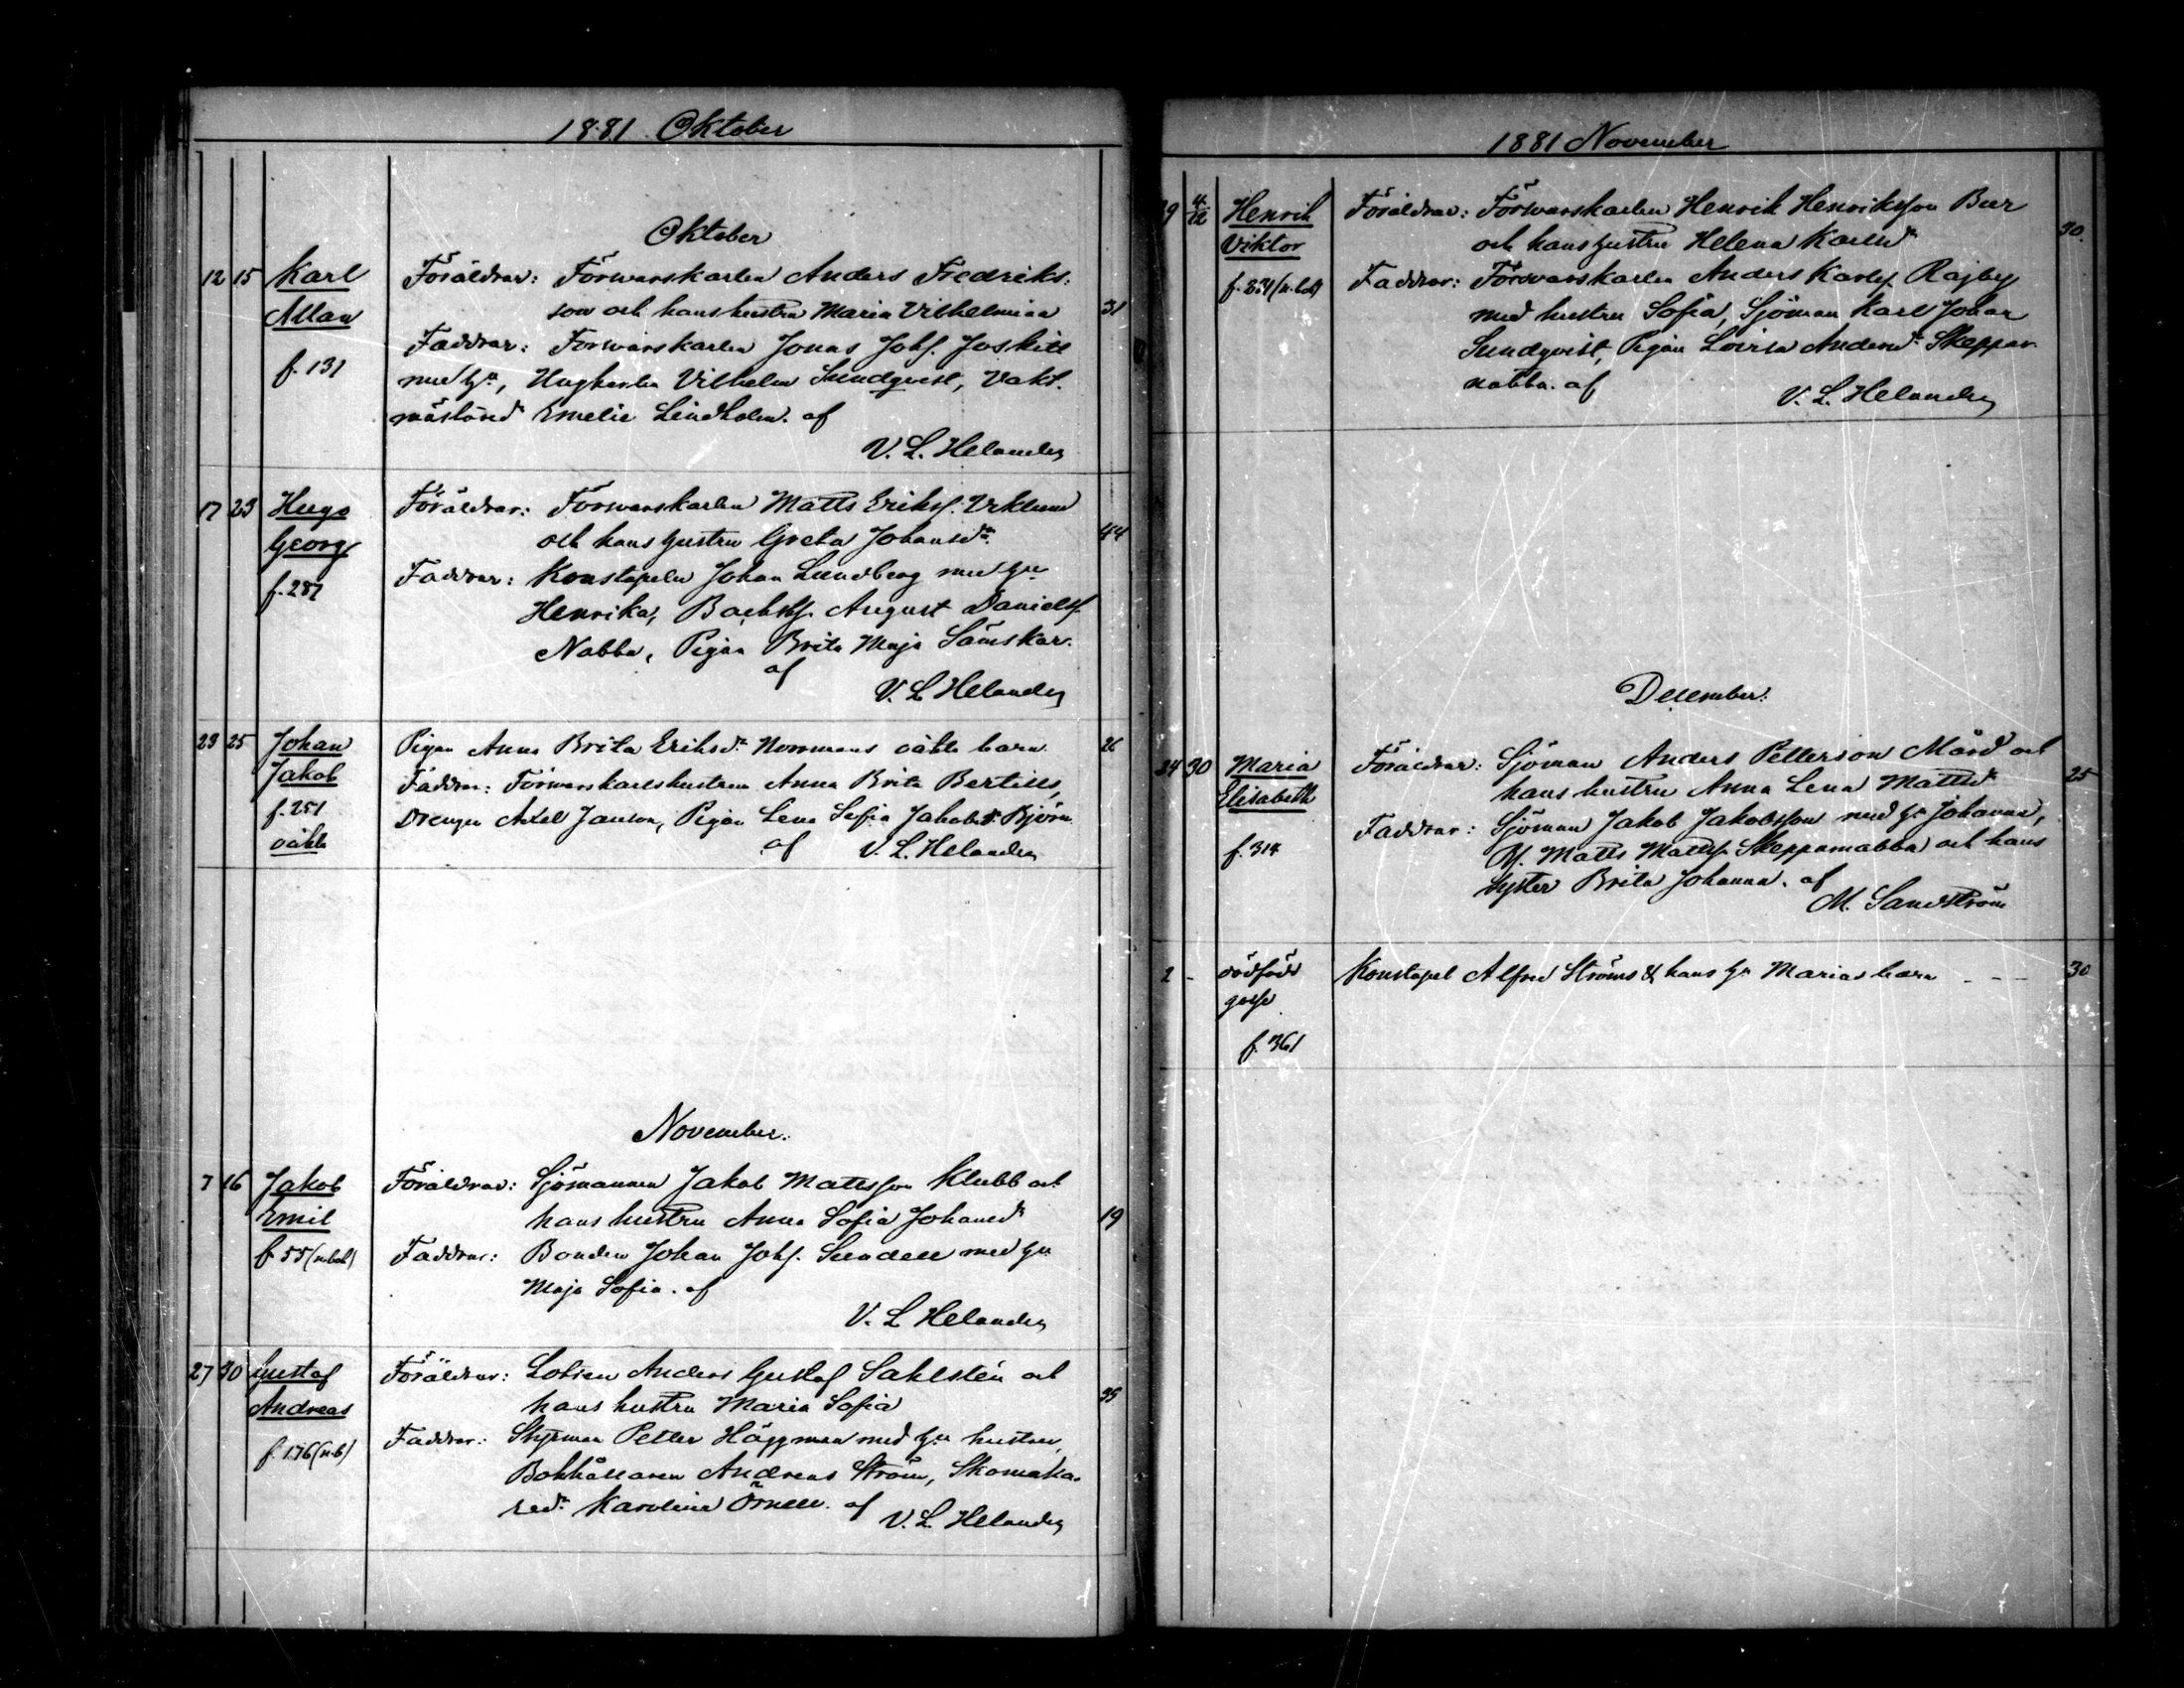 1881. Oktober
Oktober
12 15 Karl Föräldrar: Förwarskarlen Anders Fredriks:
Allan son och hans hustru Maria Vilhelmina 31
f. 131 Faddrar: Forwarskarlen Jonas Johs.
med hu, Vilhelm Sundqvist, Vakt.
Emelie Lindholm. af
V. L. Helander
17 23 Hugo Föräldrar: Förwarskarlen Matts Eriks.
Georg och hans hustru Greta Johansdr. 44
f. 287 Faddrar: Konstapeln Johan Lundberg med hu
Henrika, August Daniels.
Nabba, Pigan Brita Maja Sämskar.
af
V. L. Helander
23 25 Johan Pigan Anna Brita Eriksdr. Norrmans oäkta barn. 26
Jakob Faddrar: Förwarskarlshustrun Anna Brita Bertills,
f. 251 Drengen Axel Janson, Pigan Lena Sofia Jakobsdr. Björn
oäkta af V. L. Helander
November.
7 16 Jakob Föräldrar: Sjömannen Jakob Mattsson Klubb och
Emil hans hustru Anna Sofia Johansdr 19
f. 55 Faddrar: Bonden Johan Johs. Sundell med hu
Maja Sofia. af
V. L. Helander
27 30 Gustaf Föräldrar: Lotsen Anders Gustaf Sahlstén och
Andreas hans hustru Maria Sofia
f. 176 (n.b) Faddrar: Styrman Petter Häggman med hu hustru,
Bokhållaren Andreas Ström, Skomaka-
redr. Karolina Örnell. af
V. L. Helander
1881 November
4/12 Henrik Föräldrar: Förwarskarlen Henrik Henriksson Bur
Viktor och hans hustru Helena Karlsdr 30.
Faddrar: Förwarskarlen Anders Karls.
med hustru Sofia, Sjöman Karl Johan
Sundqvist, Pigan Lovisa Andersdr. Skeppar-
nabba. af
V. L. Helander
December.
24 30 Maria Föräldrar: Sjöman Anders Petterson Mård och
Elisabeth hans hustru Anna Lena Mattsdr 25
Faddrar: Sjöman Jakob Jakobsson med hu Johanna,
f. 314 Matts Matts. Skepparnabba och hans
syster Brita Johanna. af
M. Sandström
2 - dödfödd Konstapel Alfred Ströms & hans hu Marias barn - - - 30
gosse
f. 361